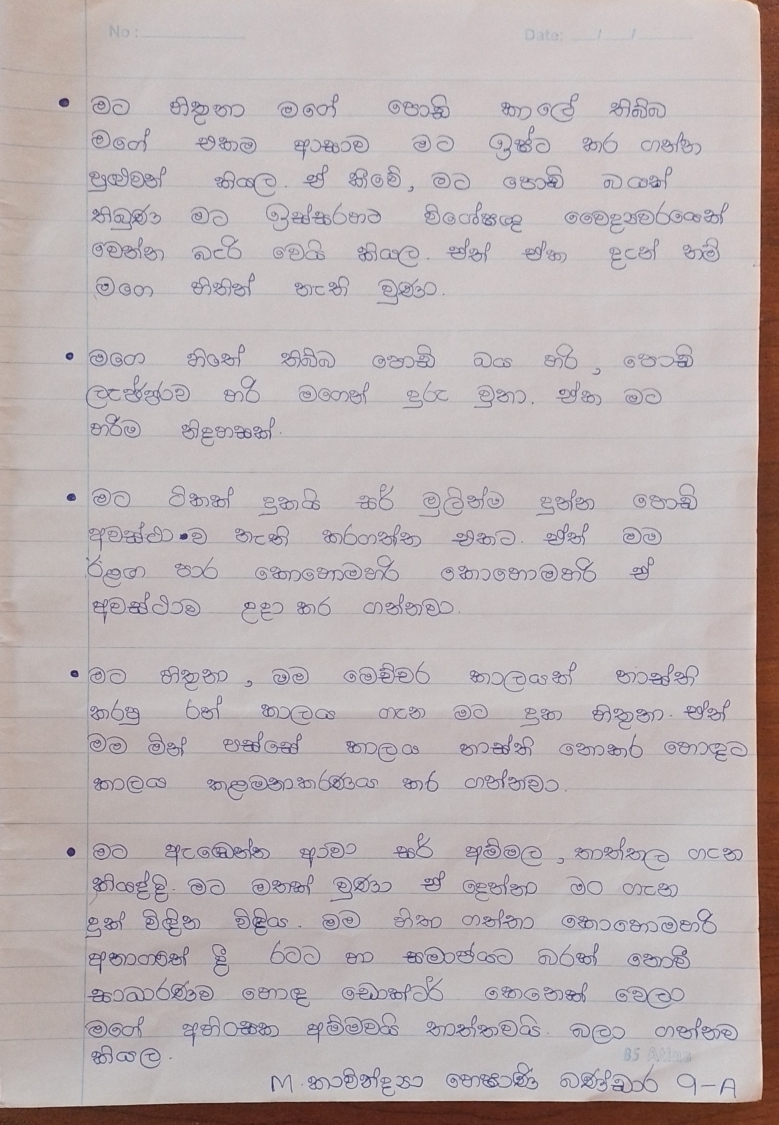 No : Date: / /
• මට හිතුනා මගේ පොඩි කාලේ තිබ්බ
මගේ එකම ආසාව මට ඉෂ්ට කර ගන්න
පුළුවන් කියල. ඒ කිව්වේ, මට පොඩි බයක්
තිබුණා මට ඉස්සරහට විශේෂඥ වෛද්‍යවරයෙක්
වෙන්න බැරි වෙයි කියල. ඒත් ඒක දැන් නම්
මගෙ හිතින් නැති වුණා.
• මගෙ හිතේ තිබ්බ පොඩි බය හරි, පොඩි
ලැජ්ජාව හරි මගෙන් දුරු වුනා. ඒක මට
හරිම නිදහසක්.
• මට ටිකක් දුකයි සර් මුලින්ම දුන්න පොඩි
අවස්ථාව නැති කරගත්ත එකට. ඒත් මම
ඊළඟ පාර කොහොමහරි කොහොමහරි ඒ
අවස්ථාව උදා කර ගන්නවා.
• මට හිතුනා, මම මෙච්චර කාලයක් නාස්ති
කරපු රන් කාලය ගැන මට දුක හිතුනා. ඒත්
මම මින් පස්සේ කාලය නාස්ති නොකර හොඳට
කාලය කළමනාකරණය කර ගන්නවා.
• මට ඇඬෙන්න ආවා සර් අම්මල, තාත්තල ගැන
කියද්දි. මට මතක් වුණා ඒ දෙන්නා මං ගැන
දුක් විඳින විදිය. මම හිතා ගත්තා කොහොමහරි
අනාගතේ දී රටට හා සමාජයට බරක් නොවී
සාධාරණව හොඳ ඩොක්ටර් කෙනෙක් වෙලා
මගේ අහිංසක අම්මවයි තාත්තවයි බලා ගන්නව
කියල.
M. කාවින්ද්‍යා නෙසානි බණ්ඩාර 9-A